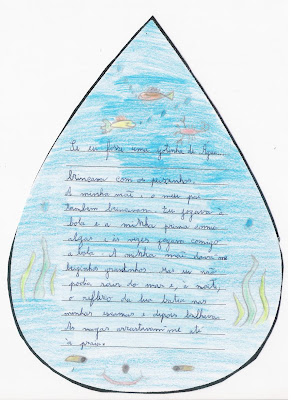 Se eu fosse uma gotinha de água...
brincava com os peixinhos.
A minha mãe e o meu pai
também brincavam. Eu jogava à
bola e a minha prima comia
algas e às vezes jogava comigo
à bola. A minha mãe dava-me
beijinhos grandinhos. Mas eu não
podia sair do mar e, à noite,
o reflexo da lua batia nas
minhas escamas e depois brilhava.
As ondas arrastavam-me até
à praia.